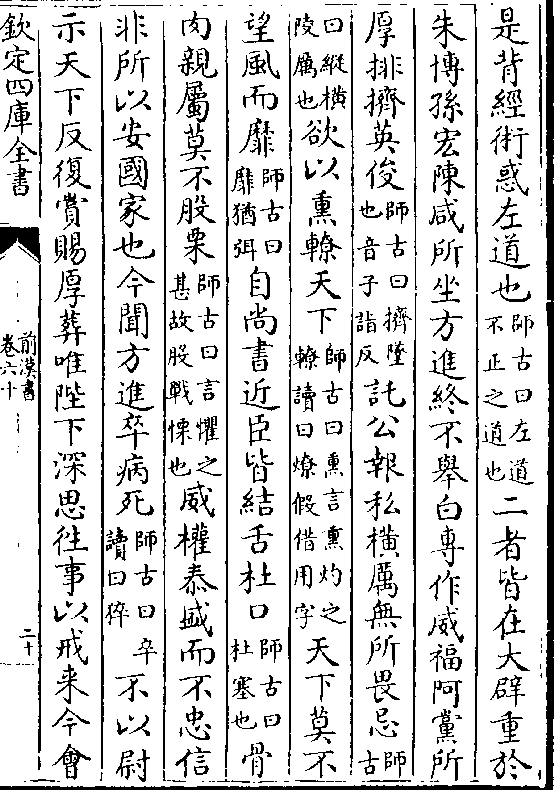 是背經術惑左道也師古曰左道不正之道也二者皆在大辟重於
朱博孫宏陳咸所坐方進終不舉白専作威福阿黨所
厚排擠英俊師古曰擠墜也音子詣反託公報私橫厲無所畏忌師古
曰縱橫陵厲也欲以熏轑天下師古曰熏言熏灼之轑讀曰燎假借用字天下莫不
望風而靡師古曰靡猶弭自尚書近臣皆結舌杜口師古曰杜塞也骨
肉親屬莫不股栗師古曰言懼之甚故股戰慄也威權泰盛而不忠信
非所以安國家也今聞方進卒病死師古曰卒讀曰猝不以尉
示天下反復賞賜厚葬唯陛下深思往事以戒来今會
欽定四庫全書
前漢書
卷六十
二十